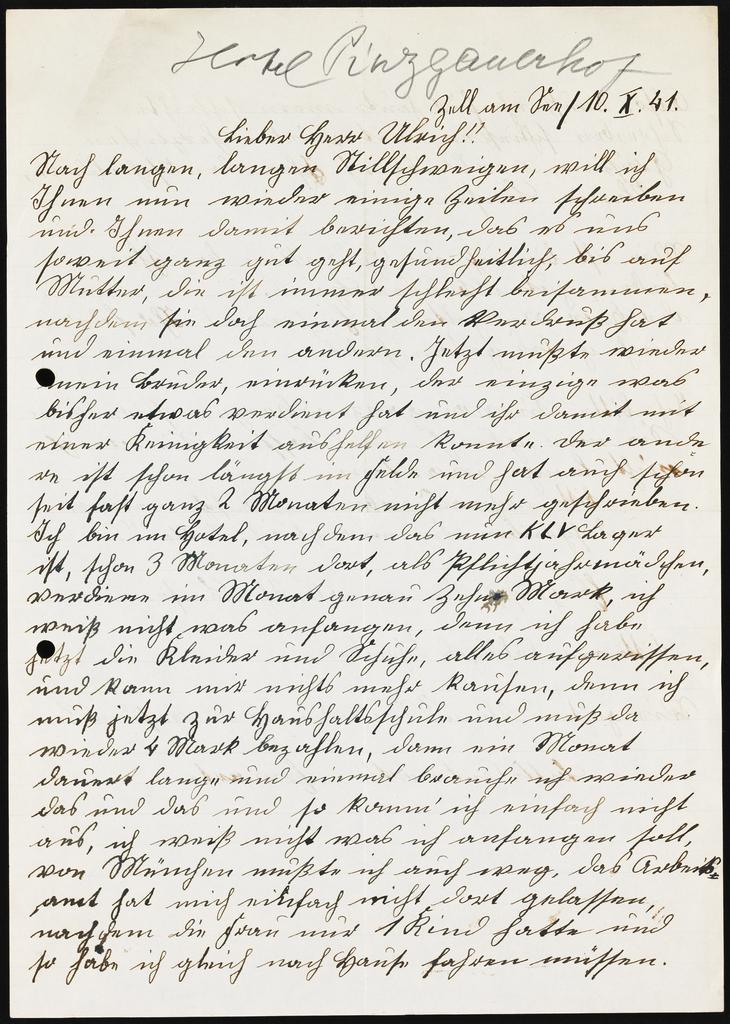 Hotel Pinzgauerhof
Zell am See/10. X. 41.
Lieber Herr Ulrich!!
Nach langen, langen Stillschweigen, will ich
Ihnen nun wieder einige Zeilen schreiben
und Ihnen damit berichten, das es uns
soweit ganz gut geht, gesundheitlich, bis auf
Mutter, die ist immer schlecht beisammen,
nachdem sie doch einmal den Verdruß hat
und einmal den andern. Jetzt mußte wieder
mein Bruder, einrücken, der einzige was
bisher etwas verdient hat und ihr damit mit
einer Keinigkeit aushelfen konnte. Der ande
re ist schon längst im Felde und hat auch schon
seit fast ganz 2 Monaten nicht mehr geschrieben.
Ich bin im Hotel, nachdem das nun KLV Lager
ist, schon 3 Monaten dort, als Pflichtjahrmädchen,
verdiene im Monat genau Zehn Mark, ich
weiß nicht was anfangen, denn ich habe
jetzt die Kleider und Schuhe, alles aufgerissen,
und kann mir nichts mehr kaufen, denn ich
muß jetzt zur Haushaltsschule und muß da
wieder 4 Mark bezahlen, dann ein Monat
dauert lange und einmal brauche ich wieder
das und das und so komm' ich einfach nicht
aus, ich weiß nicht was ich anfangen soll,
von München mußte ich auch weg, das Arbeits=
amt hat mich einfach nicht dort gelassen,
nachdem die Frau nur 1 Kind hatte und
so habe ich gleich nach Hause fahren müssen.